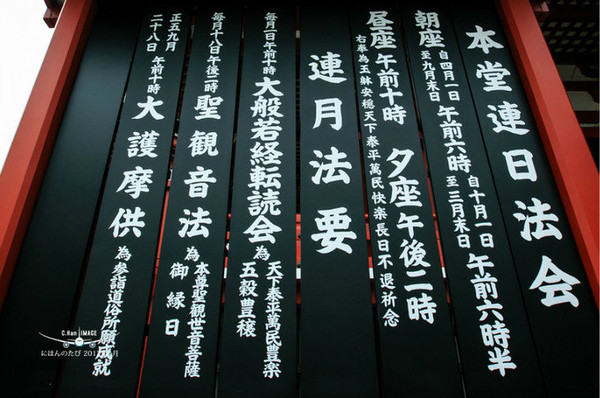 本堂連日法会
朝座 自四月一日 至九月末日 午前六時 自十月一日 至三月末日 午前六時半
昼座 午前十時 夕座 午後二時
右奉為玉躰安穏天下泰平萬民快楽長日不退祈念
連月法要
毎月一日午前十時 大般若経転読会 為 天下泰平萬民豊楽 五穀豊穣
毎月十八日午後二時 聖観音法 為 本尊聖観世音菩薩 御縁日
正五九月 二十八日 午前十時 大護摩供 為参詣道俗所願成就
C.Han IMAGE